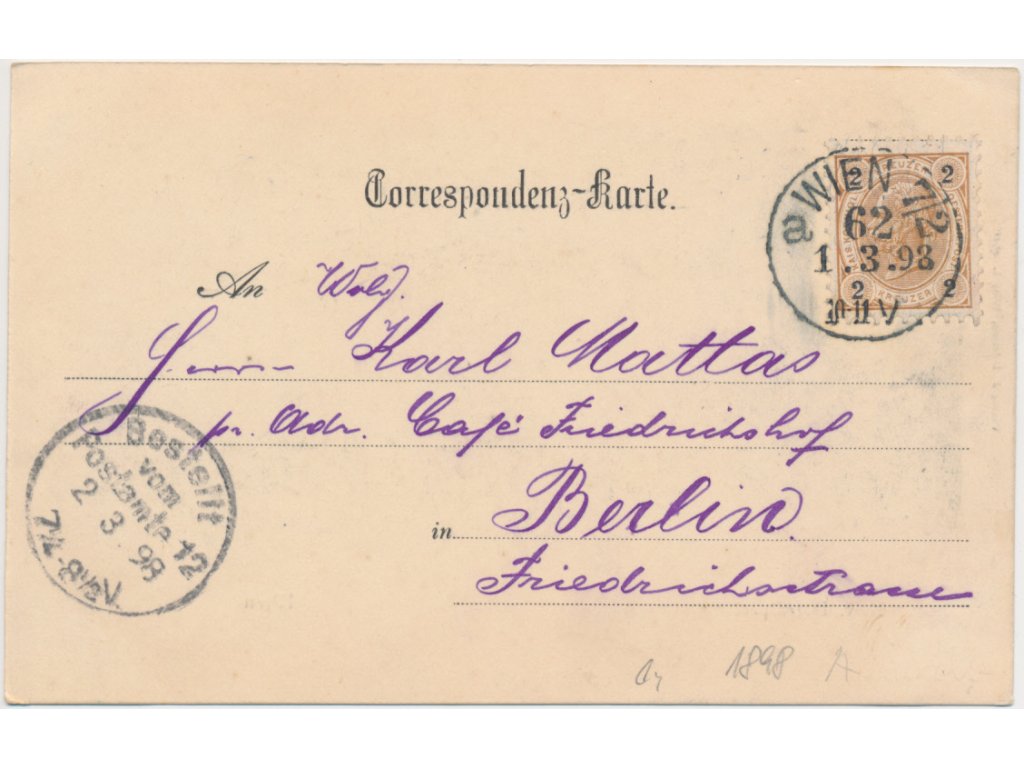 Correspondenz-Karte.
WIEN 7/2
a
62
1.3.98
10-11V
2 KREUZER 2
2 KREUZER 2
An Wolg.
Herrn Karl Mattas
pr. Adr. Café Friedrichshof
in Berlin.
Friedrichstrasse
Bestellt
vom
Postamte 12
2 3.98
7¼-8½V.
1898